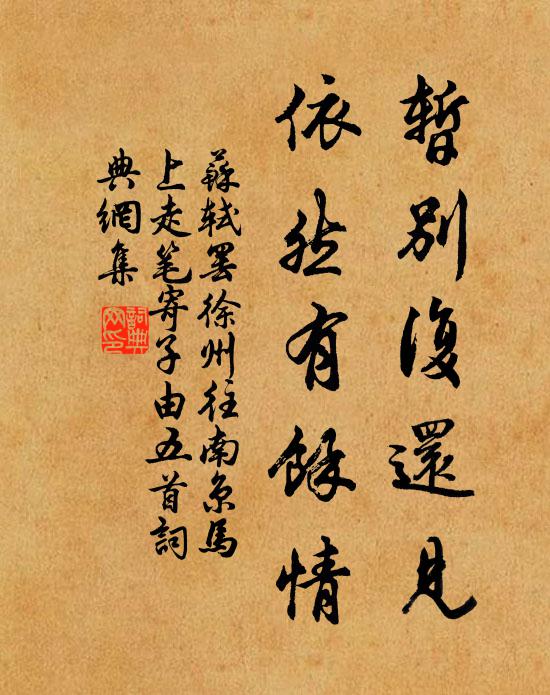 暫別復還見
依然有餘情
蘇軾罢徐州往南京馬
上走笔寄子由五首詞
典網集
詞典
网印